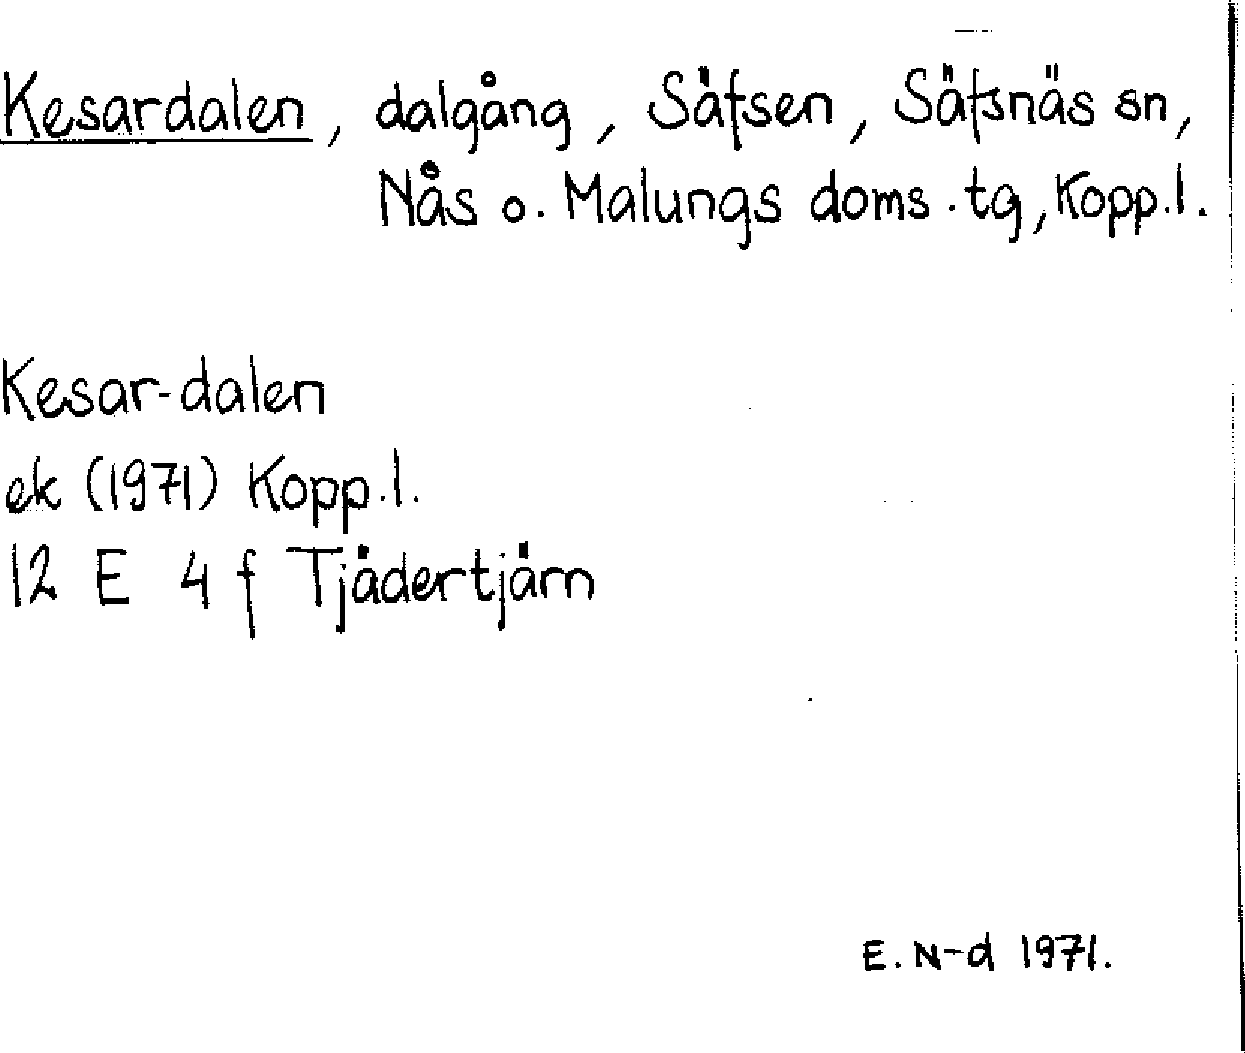 Kesardalen, dalgång, Säfsen, Säfsnäs sn,
Nås o. Malungs doms.tg, Kopp.l.
Kesar-dalen
ek (1971) Kopp.l.
12 E 4 f Tjädertjärn
E. N-d 1971.